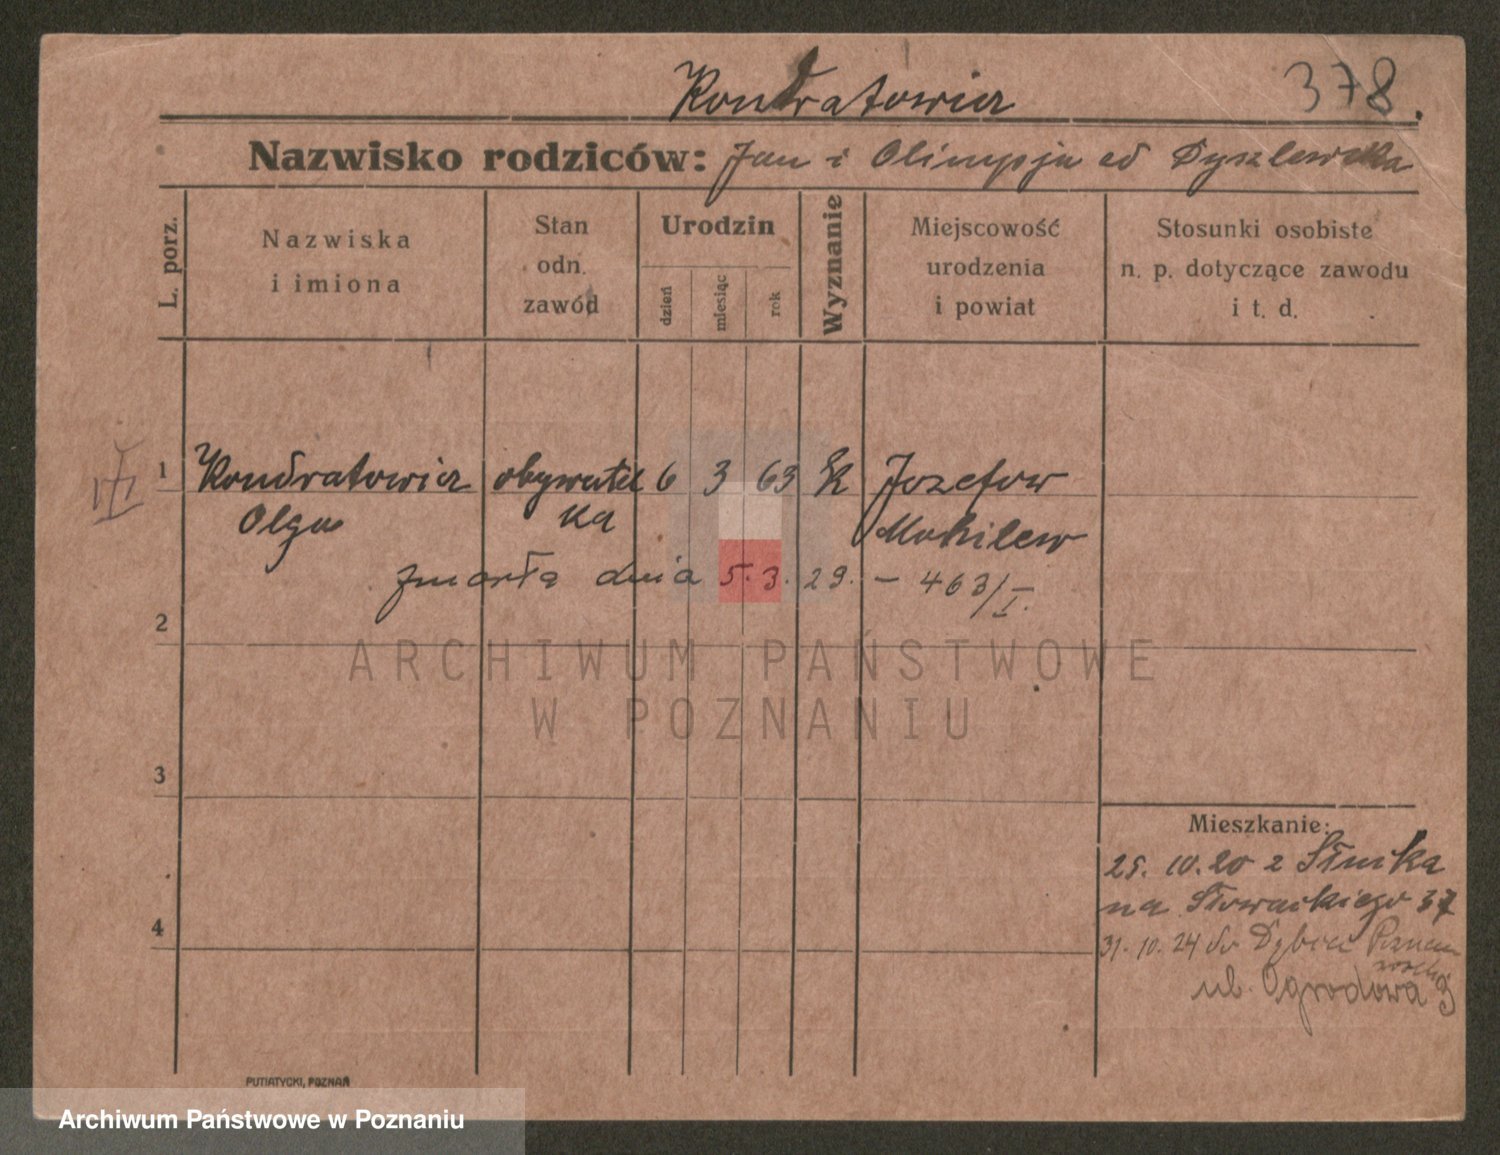 Kondratowicz
378.
Nazwisko rodziców: Jan i Olimpja ed Dyszlewska
L. porz.
Nazwiska
i imiona
Stan
odn.
zawód
Urodzin
dzień
miesiąc
rok
Wyznanie
Miejscowość
urodzenia
i powiat
Stosunki osobiste
n. p. dotyczące zawodu
i t. d.
1 Kondratowicz obywatel 6 3 63 Józefow
Olga ka Mohilew
zmarła dnia 5.3.29. - 463/I.
2
3
4
Mieszkanie:
25. 10. 20 z Słuska
na Słowackiego 37
31. 10. 24 do Dębiec Poznań
ul. Ogrodowa 9
PUTIATYCKI, POZNAŃ
ARCHIWUM PAŃSTWOWE
W POZNANIU
Archiwum Państwowe w Poznaniu